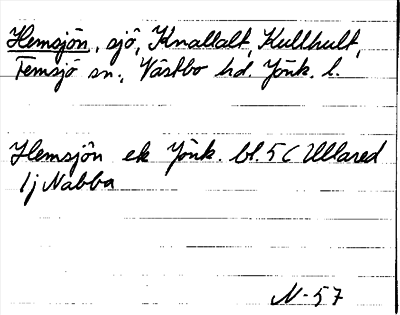 Hemsjön, sjö, Knallalt, Kullhult,
Femsjö sn., Västbo hd. Jönk. l.
Hemsjön ek Jönk. bl. 5 C Ullared
1j Nabba
N-57